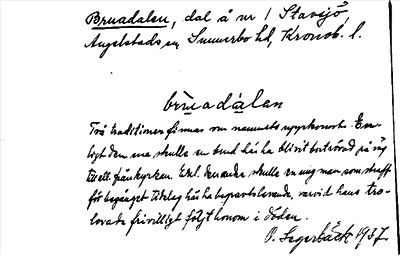 Brudalen, dal å nr 1 Stavsjö,
Angelstads sn, Sunnerbo hd, Kronob. l.
brùadàlan
Två traditioner finnas om namnets uppkomst. En-
ligt den ena skulle en brud här ha blivit bortrövad på väg
till ell. från kyrkan. Enl. den andra skulle en ung man som straff
för begånget tidelag här ha begravts levande, varvid hans tro-
lovade frivilligt följt honom i döden.
O. Segerbäck 1937